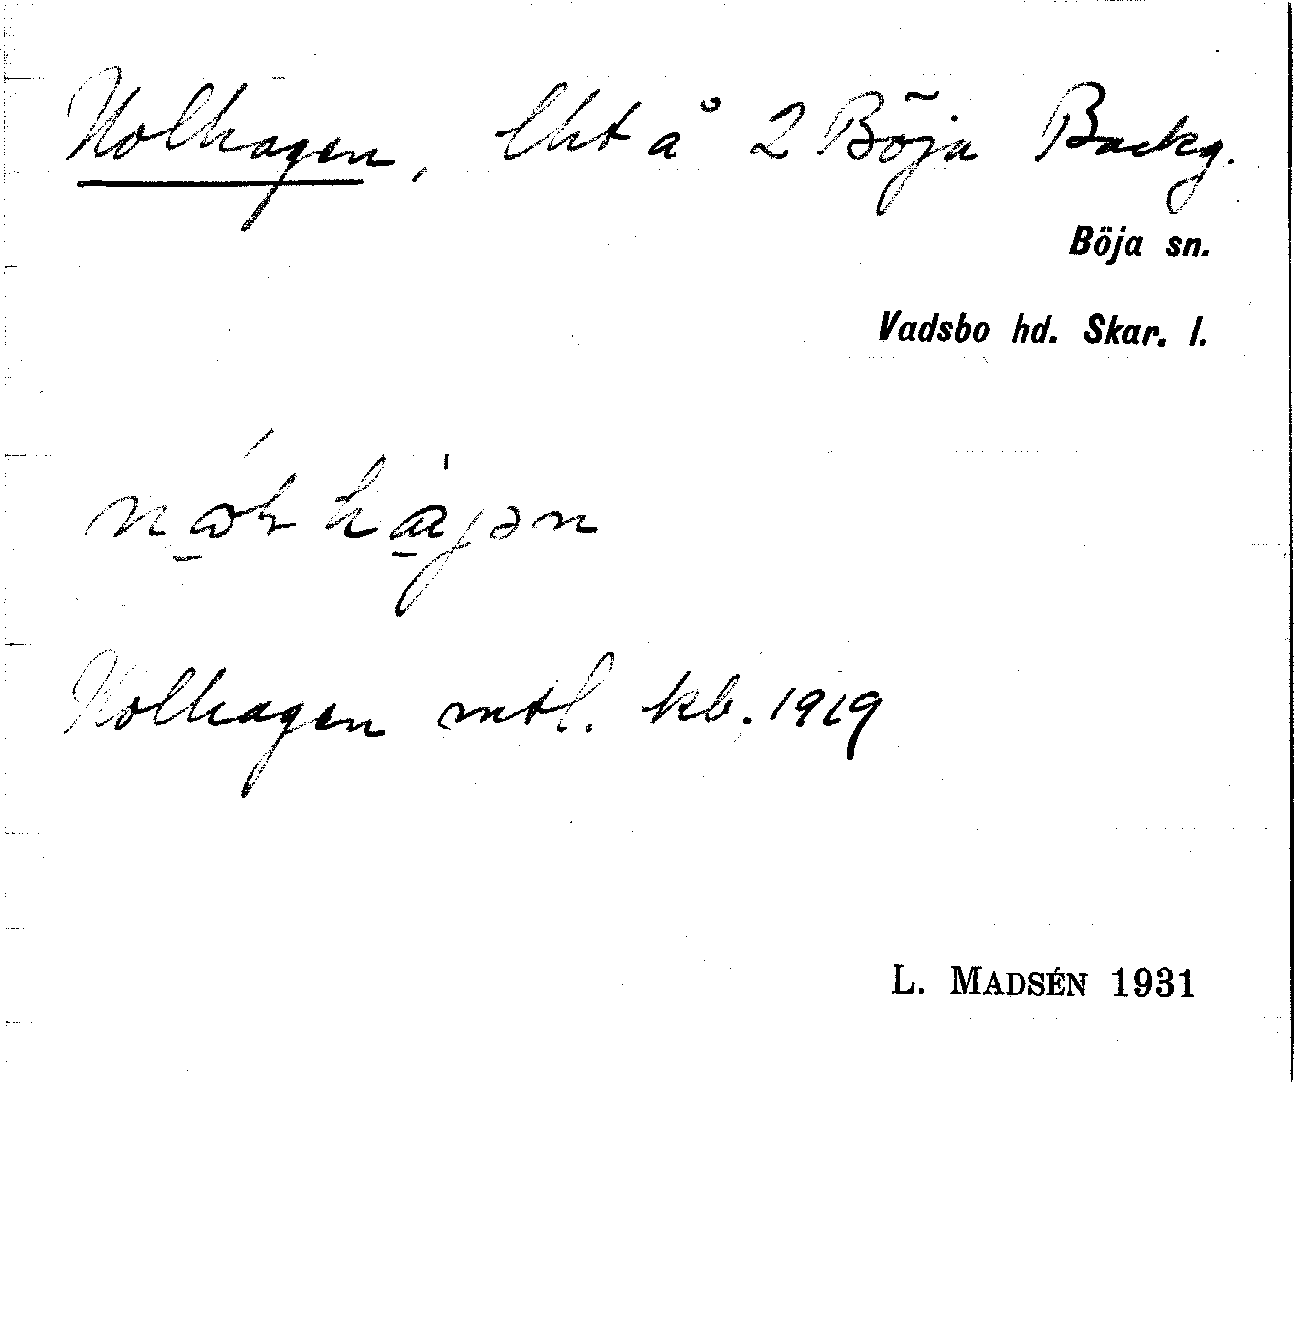 Nolhagen, lht å 2 Böja Backg.
Böja sn.
Vadsbo hd. Skar. l.
Nolhagen mtl. kb. 1919
L. MADSÉN 1931